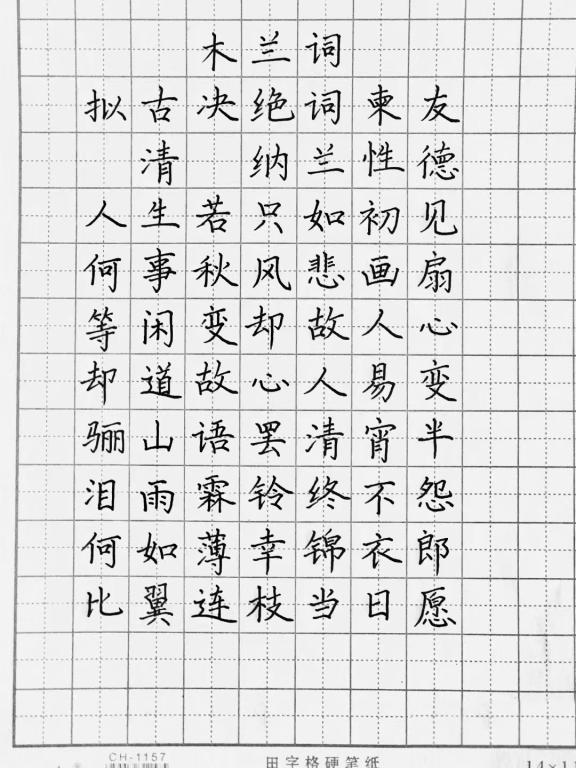 木兰词
拟古决绝词柬友
清 纳兰性德
人生若只如初见
何事秋风悲画扇
等闲变却故人心
却道故心人易变
骊山语罢清宵半
泪雨霖铃终不怨
何如薄幸锦衣郎
比翼连枝当日愿
CH-1157 田字格硬笔纸